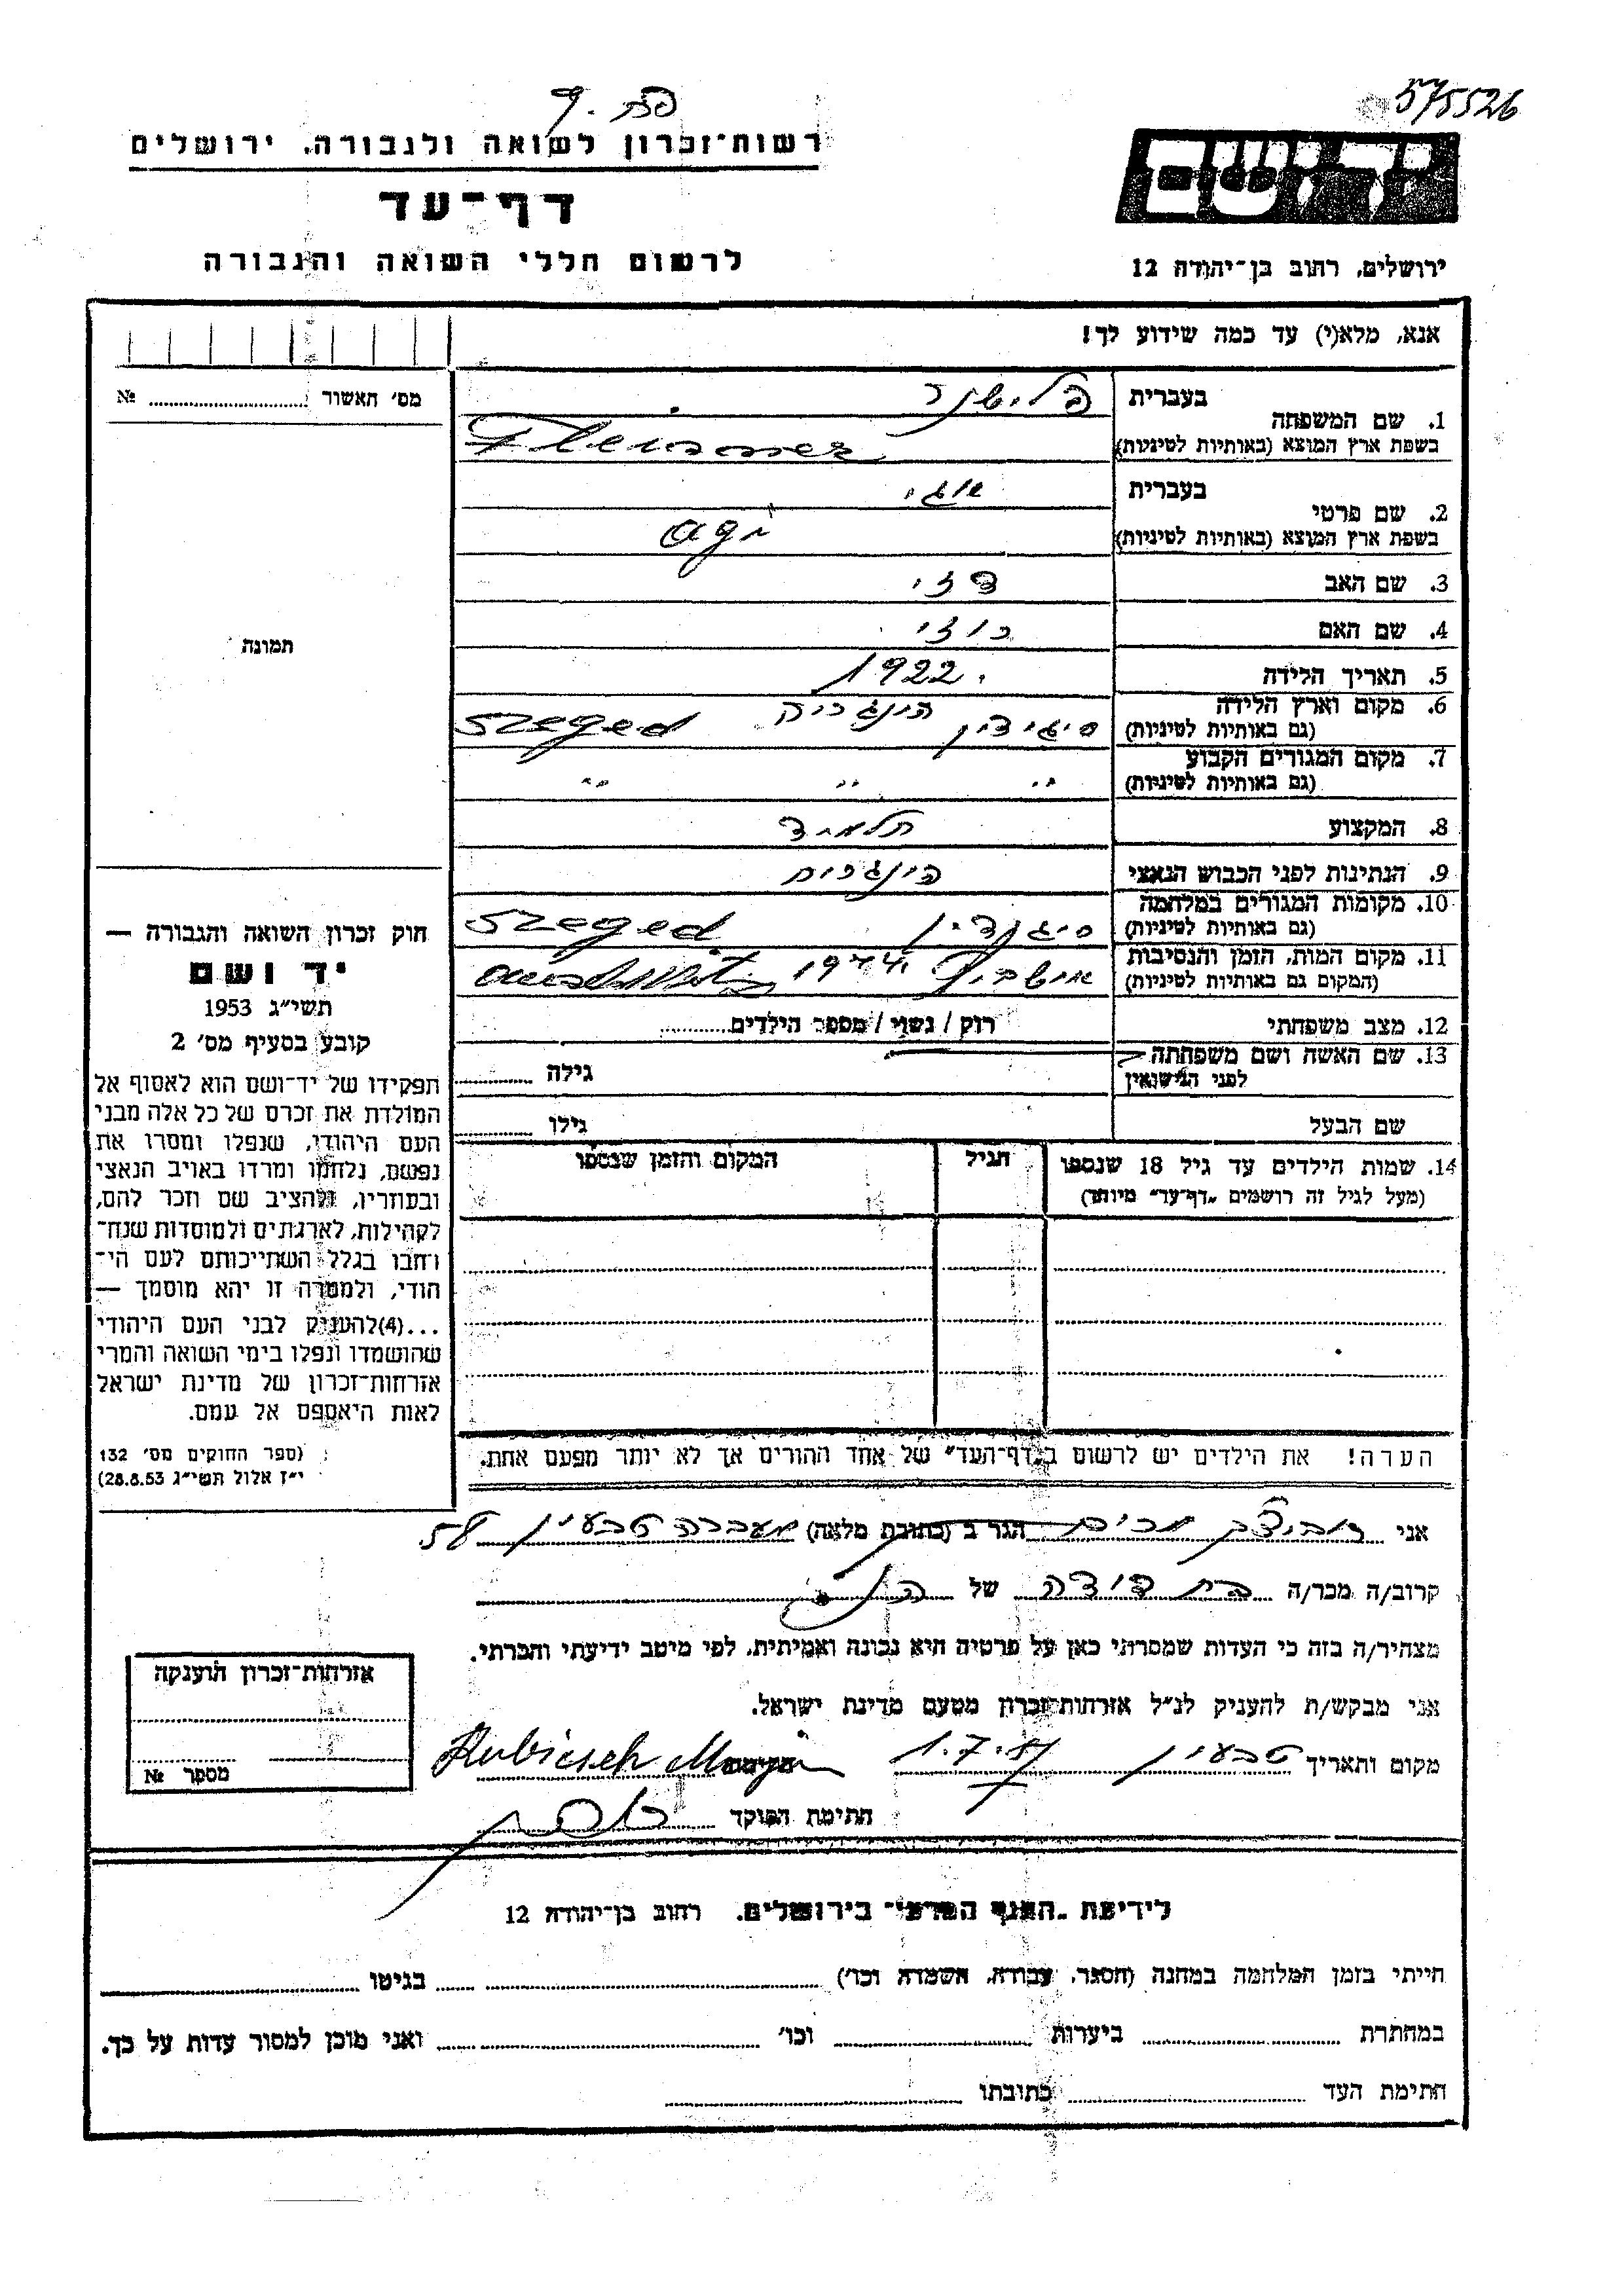 575526
רשות־זכרון לשואה ולגבורה, ירושלים
דף־עד
לרשום חללי השואה והגבורה
יד ושם
ירושלים, רחוב בן־יהודה 12
אנא, מלא(י) עד כמה שידוע לך!
מס׳ האשור № 
1. שם המשפחה
בעברית פלישנר
בשפת ארץ המוצא (באותיות לטיניות)
2. שם פרטי
בעברית אגי
בשפת ארץ המוצא (באותיות לטיניות) Agi
3. שם האב דזי
4. שם האם רוזי
5. תאריך הלידה 1922
6. מקום וארץ הלידה
(גם באותיות לטיניות) סיגידין הונגריה Szeged
7. מקום המגורים הקבוע
(גם באותיות לטיניות) " " "
8. המקצוע תלמיד
9. הנתינות לפני הכבוש הנאצי
10. מקומות המגורים במלחמה
(גם באותיות לטיניות) Szeged
11. מקום המות, הזמן והנסיבות
(המקום גם באותיות לטיניות) אושביץ 1944
12. מצב משפחתי רוק / נשוי / מספר הילדים
13. שם האשה ושם משפחתה
לפני הנישואין
גילה
שם הבעל
גילו
14. שמות הילדים עד גיל 18 שנספו
(מעל לגיל זה רושמים „דף־עד" מיוחד)
הגיל
המקום והזמן שנספו
הערה! את הילדים יש לרשום ב„דף־העד" של אחד ההורים אך לא יותר מפעם אחת.
תמונה
חוק זכרון השואה והגבורה —
יד ושם
תשי״ג 1953
קובע בסעיף מס׳ 2
תפקידו של יד־ושם הוא לאסוף אל
המולדת את זכרם של כל אלה מבני
העם היהודי, שנפלו ומסרו את
נפשם, נלחמו ומרדו באויב הנאצי
ובעוזריו, ולהציב שם וזכר להם,
לקהילות, לארגונים ולמוסדות שנח־
רחבו בגלל השתייכותם לעם הי־
הודי, ולמטרה זו יהא מוסמך —
...(4)להעניק לבני העם היהודי
שהושמדו ונפלו בימי השואה והמרי
אזרחות־זכרון של מדינת ישראל
לאות היאספם אל עמם.
(ספר החוקים מס׳ 132
י״ז אלול תשי״ג 28.8.53)
אני רוביצק מרים הגר ב (כתובת מלאה) מעברה טבעון 58
קרוב/ה מכר/ה בת דודה של הנ״ל
מצהיר/ה בזה כי העדות שמסרתי כאן על פרטיה היא נכונה ואמיתית, לפי מיטב ידיעתי והכרתי.
אני מבקש/ת להעניק לנ״ל אזרחות־זכרון מטעם מדינת ישראל.
מקום ותאריך טבעון 1.7.57 חתימה
חתימת הפוקד
אזרחות־זכרון הוענקה
מספר №
לידיעת „הגוף הפרטי" בירושלים, רחוב בן־יהודה 12
הייתי בזמן המלחמה במחנה (הסגר, עבודה, השמדה וכו׳) בגיטו
במחתרת ביערות וכו׳ ואני מוכן למסור עדות על כך.
חתימת העד כתובתו